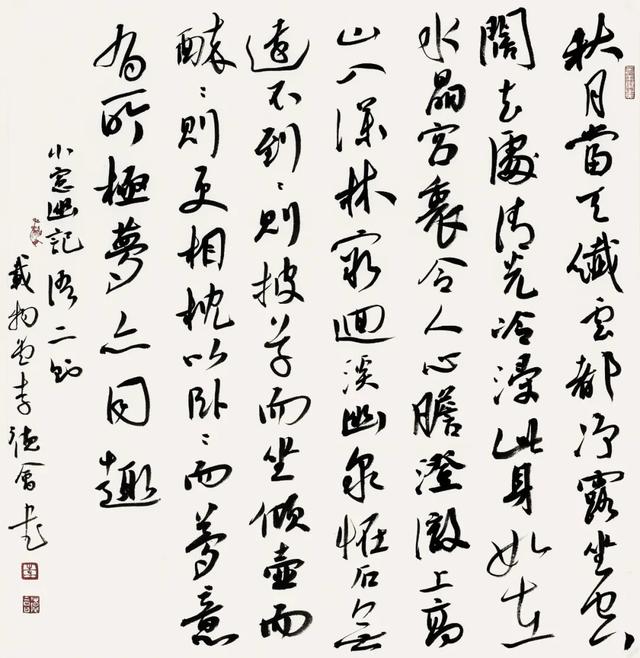 秋月當天纖雲都淨露坐空
闊去處清光冷浸此身如在
水晶宮裏令人心膽澄澈上高
山入深林窮迴溪幽泉怪石無
遠不到〻則披草而坐傾壺而
醉〻則更相枕以臥〻而夢意
有所極夢亦同趣
小窗幽記語二則
載物堂李德會書